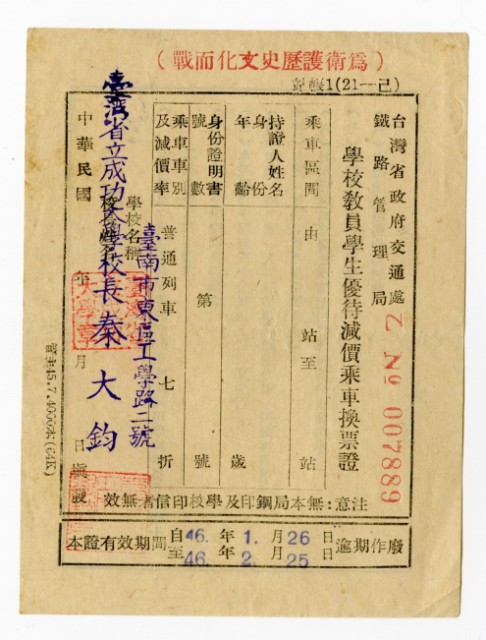 （戰而化文史歷護衛為）
(21—己)1
台灣省政府交通處
鐵路管理局
學校教員學生優待減價乘車換票證
2 N 2 007889
乘車區間 由 站至 站
持證人姓名
身份
年齡 歲
身份證明書號數 第 號
乘車車別及減價率 普通列車 七折
學校名稱
臺南市東區工學路二號
臺灣省立成功大學校長秦大鈞
中華民國 年 月 日
效無者信印校學及印鋼局本無：意注
本證有效期間 自46.年1.月26日 至46年2月25日 逾期作廢